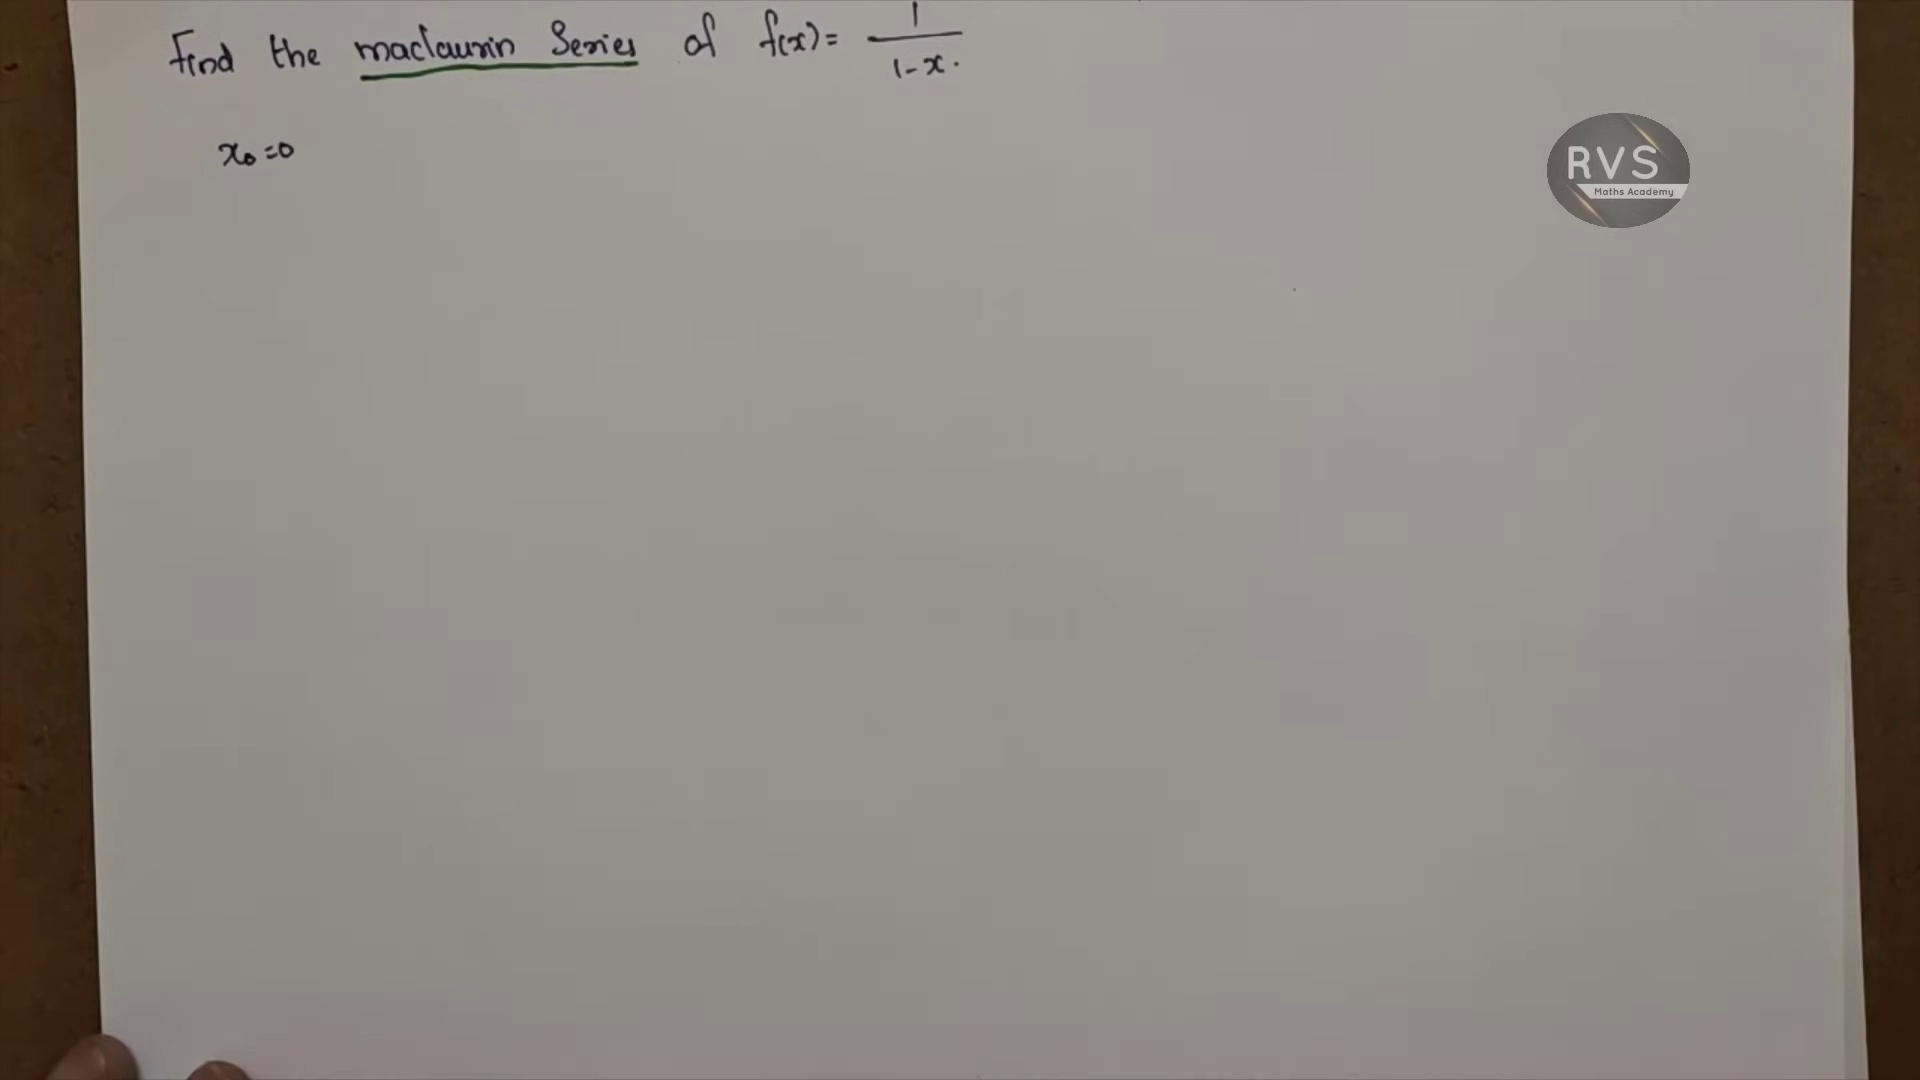 Find the maclaurin Series of f(x) = 1/(1-x).
x₀ = 0
RVS
Maths Academy